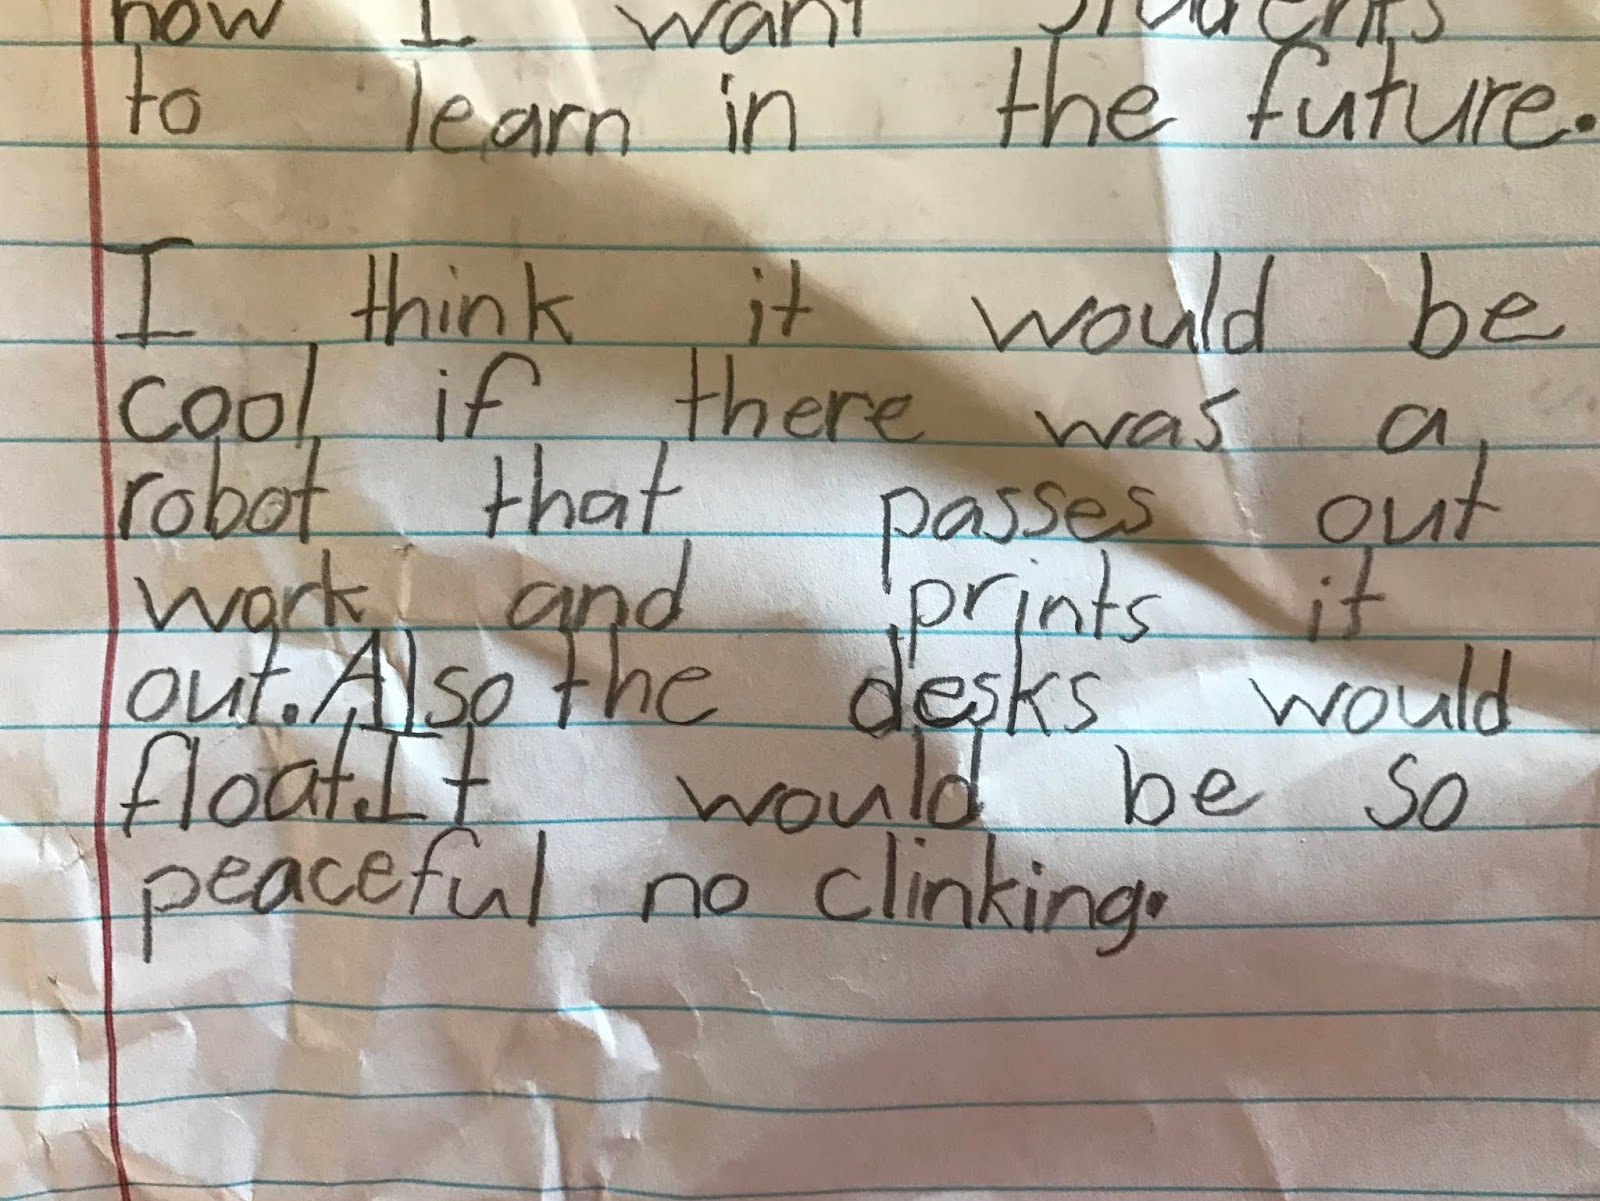 how I want students
to learn in the future.
I think it would be
cool if there was a
robot that passes out
work and prints it
out. Also the desks would
float. It would be so
peaceful no clinking.